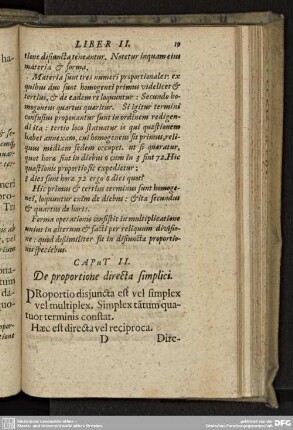 LIBER II. 19
tione disiuncta teneantur. Notetur inquam eius
materia & forma.
Materia sunt tres numeri proportionales: ex
quibus duo sunt homogenei primus videlicet &
tertius, & de eadem re loquuntur: Secundo ho-
mogeneus quartus quæritur. Si igitur termini
confusius proponantur sunt in ordinem redigen-
di ita: tertio loco statuatur is qui quæstionem
habet annexam, cui homogeneus sit primus, reli-
quus mediam sedem occupet. ut si quæratur,
quot horæ sint in diebus 6 cum in 3 sint 72. Hic
quæstionis proportio sic expedietur:
3 dies sunt horæ 72 ergo 6 dies quot?
Hic primus & tertius terminus sunt homoge-
nei, loquuntur enim de diebus: & ita secundus
& quartus de horis.
Forma operationis consistit in multiplicatione
unius in alterum & facti per reliquum divisio-
ne: quod dissimiliter fit in disjunctæ proportio-
nis speciebus.
CAPUT II.
De proportione directa simplici.
PRoportio disjuncta est vel simplex
vel multiplex. Simplex tãtùm qua-
tuor terminis constat.
Hæc est directa vel reciproca.
D Dire-